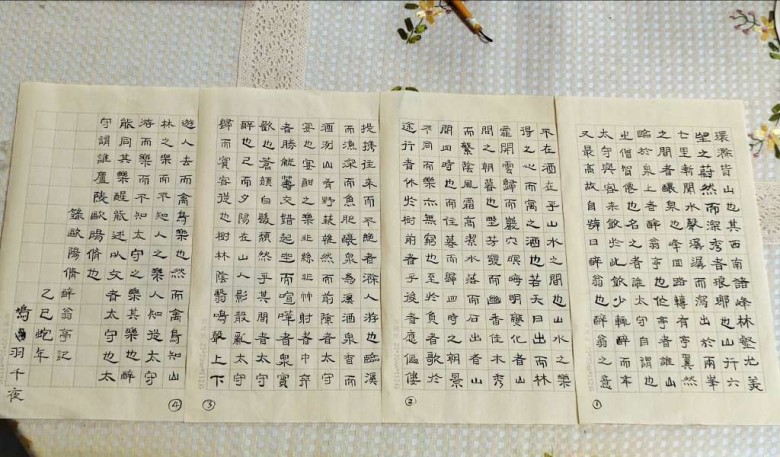 環滁皆山也其西南諸峰林壑尤美
望之蔚然而深秀者瑯琊也山行六
七里漸聞水聲潺潺而瀉出於兩峯
之間者釀泉也峰回路轉有亭翼然
臨於泉上者醉翁亭也作亭者誰山
之僧智僊也名之者誰太守自謂也
太守與客來飲於此飲少輒醉而年
又最高故自號曰醉翁也醉翁之意
不在酒在乎山水之間也山水之樂
得之心而寓之酒也若夫日出而林
霏開雲歸而巖穴暝晦明變化者山
間之朝暮也野芳發而幽香佳木秀
而繁陰風霜高潔水落而石出者山
間四時也而往暮而歸四時之朝景
不同而樂亦無窮也至於負者歌於
途行者休於樹前者乎後者應傴僂
提携往來而不絕者滁人游也臨溪
而漁深而魚肥釀泉為溪酒泉香而
酒洌山肴野蔌雜然而前陳者太守
宴也宴酣之樂非絲非竹射者中弈
者勝觥籌交錯起坐而喧嘩者眾賓
歡也蒼顏白髮頹然乎其間者太守
醉也已而夕陽在山人影散亂太守
歸而賓客從也樹林陰翳鳴聲上下
遊人去而禽鳥樂也然而禽鳥知山
林之樂而不知人之樂人知從太守
游而樂而不知太守之樂其樂也醉
能同其樂醒能述以文者太守也太
守謂誰廬陵歐陽脩也
錄歐陽脩醉翁亭記
乙巳蛇年
羽千夜
①
②
③
④